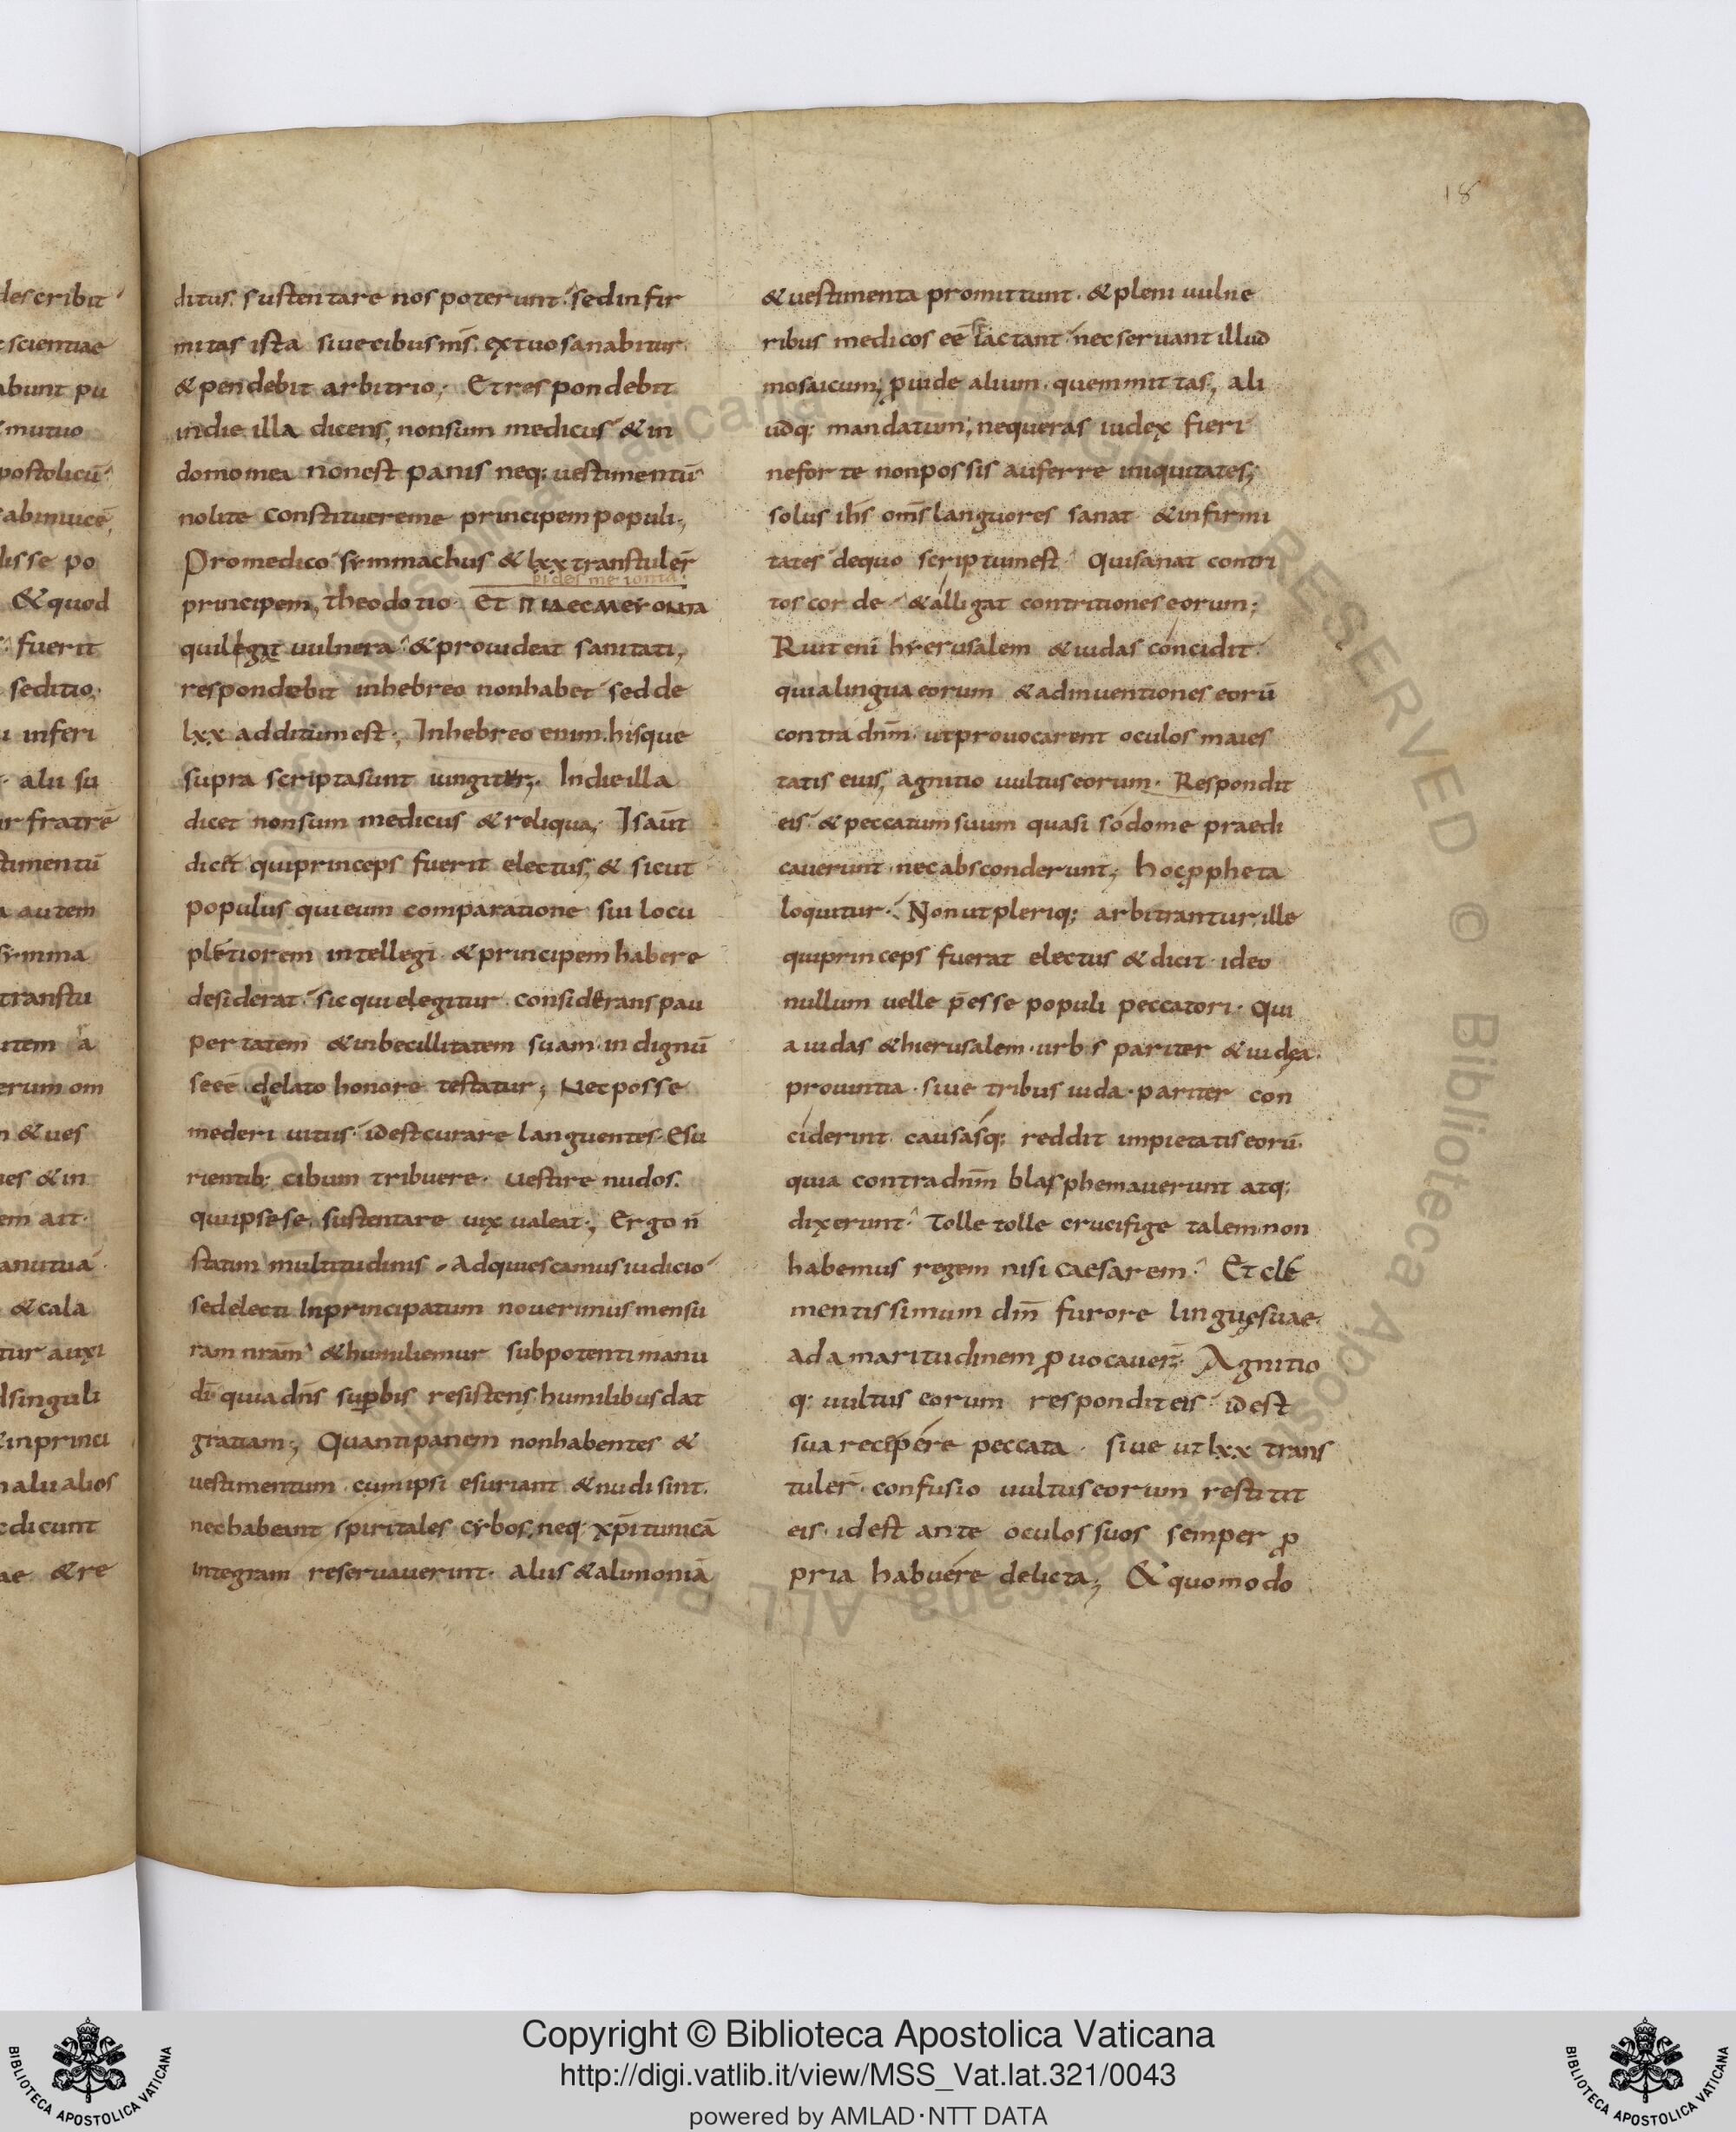 18
describit
scientiae
abunt pu
mutuo
postolicū
abinuicē
disse po
& quod
fuerit
seditio
inferi
alii su
ur fratrē
stimentū
autem
symma
transtu
item a
erum om
& ues
& in
em ait
anutuā
& cala
tur auxi
singuli
inprinci
alii alios
dicunt
ae & re
ditus. sustentare nos poterunt. sed infir
mitas ista siue cibus m̄s. ex tuo sanabitur.
& pendebit arbitrio; Et respondebit
in die illa dicens, non sum medicus & in
domo mea non est panis neq; uestimentū
nolite constituere me principem populi;
Pro medico symmachus & lxx transtuler̄
principem, theodotio. Et
qui legit uulnera & prouideat sanitati,
respondebit in hebreo non habet sed de
lxx additum est; In hebreo enim. his que
supra scripta sunt iungitur; In die illa
dicet non sum medicus & reliqua; Isaūt
dicit qui princeps fuerit electus; & sicut
populus qui eum comparatione sui locu
pletiorem intellegi & principem habere
desiderat. sic qui elegitur considerans pau
pertatem & inbecillitatem suam. indignū
se eē delato honore testatur; Nec posse
mederi uitiis idest curare languentes. Esu
rientib; cibum tribuere. uestire nudos.
qui ipse se sustentare uix ualeat; Ergo n̄
statim multitudinis. Adquiescamus iudicio
sed electi In principatum nouerimus mensu
ram nrām & humiliemur sub potenti manu
dī quia dn̄s supbis resistens. humilibus dat
gratiam; Quanti panem non habentes &
uestimentum. cum ipsi esuriant & nudi sint.
nec habeant spiritales cybos, neq; xp̄i tunicā
integram reseruauerint. aliis & alimoniā
& uestimenta promittunt. & pleni uulne
ribus medicos eē iactant nec seruant illud
mosaicum; puide alium. quem mittas; ali
udq; mandatum; ne queras iudex fieri
ne forte non possis auferre iniquitates;
solus ihs om̄s languores sanat & infirmi
tates de quo scriptum est. Qui sanat contri
tos corde. & alligat contritiones eorum;
Ruit enī hyerusalem & iudas concidit.
quia lingua eorum & adinuentiones eorū
contra dn̄m. ut prouocarent oculos maies
tatis eius, agnitio uultus eorum. Respondit
eis. & peccatum suum quasi sodome praedi
cauerunt. nec absconderunt; hoc ppheta
loquitur. Non ut pleriq; arbitrantur. ille
qui princeps fuerat electus & dicit. ideo
nullum uelle p̄esse populi peccatori. qui
a iudas & hierusalem. urbs pariter & iudęa.
prouintia. siue tribus iuda. pariter con
ciderint. causasq; reddit impietatis eorū.
quia contra dn̄m blasphemauerunt atq;
dixerunt. Tolle tolle crucifige talem. non
habemus regem nisi caesarem. Et cle
mentissimum dm̄ furore linguę suae.
ad amaritudinem puocauer̄; Agnitio
q; uultus eorum respondit eis idest
sua recepere peccata. siue ut lxx trans
tuler̄. confusio uultus eorum restitit
eis. idest ante oculos suos semper p
pria habuere delicta; & quomodo
Vaticana ALL RIGHTS RESERVED © Biblioteca Apostolica Vaticana ALL RIGHTS RESERVED © Biblioteca Apostolica
BIBLIOTECA APOSTOLICA VATICANA
Copyright © Biblioteca Apostolica Vaticana
http://digi.vatlib.it/view/MSS_Vat.lat.321/0043
powered by AMLAD·NTT DATA
BIBLIOTECA APOSTOLICA VATICANA